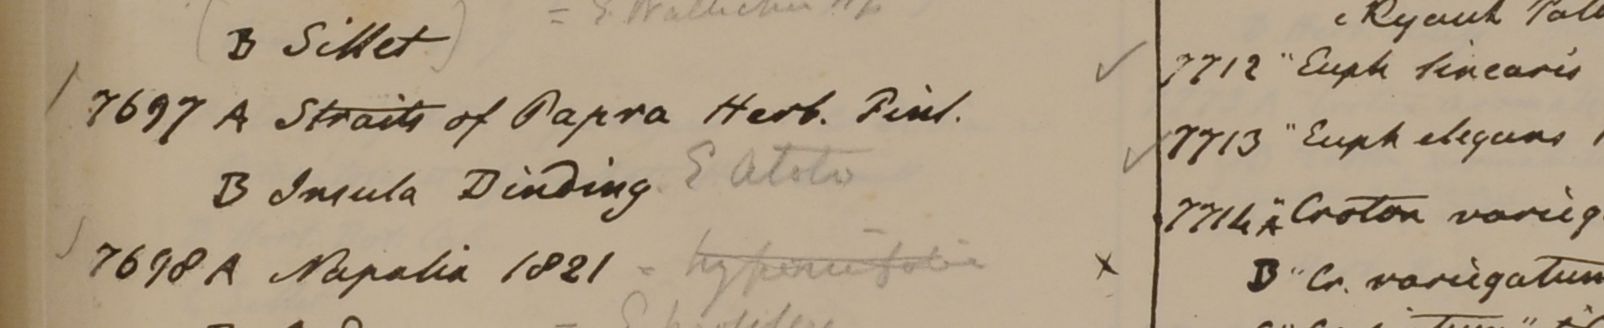 = E Wallichii
B Sillet
7697 A Straits of Papra Herb. Finl.
B Insula Dinding E Atoto
7698 A Napalia 1821 - hypericifolia
=
7712 " Euph linearis
7713 " Euph elegans
7714 " A Croton varieg
B " Cr. variegatum